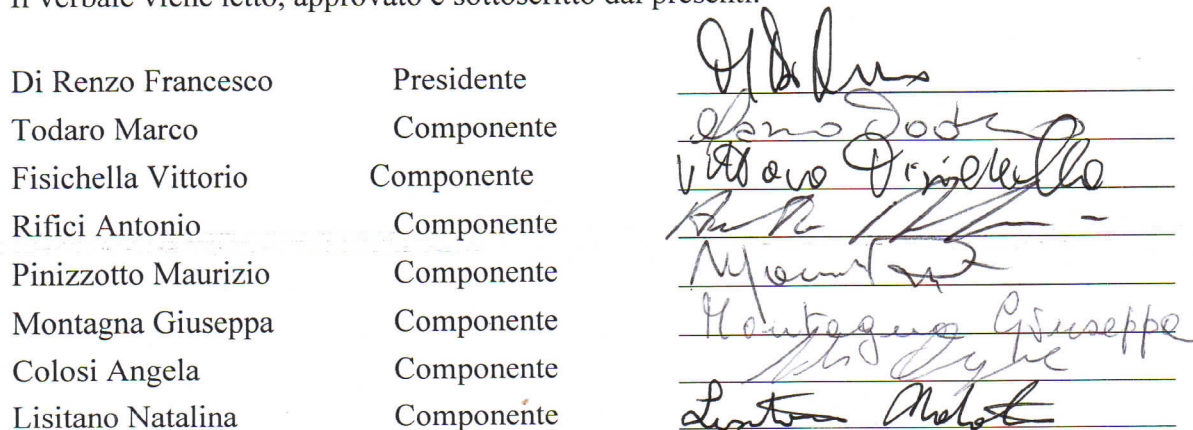 Il verbale viene letto, approvato e sottoscritto dai presenti.
Di Renzo Francesco Presidente
Todaro Marco Componente
Fisichella Vittorio Componente Vittorio Fisichella
Rifici Antonio Componente
Pinizzotto Maurizio Componente
Montagna Giuseppa Componente Montagna Giuseppa
Colosi Angela Componente
Lisitano Natalina Componente